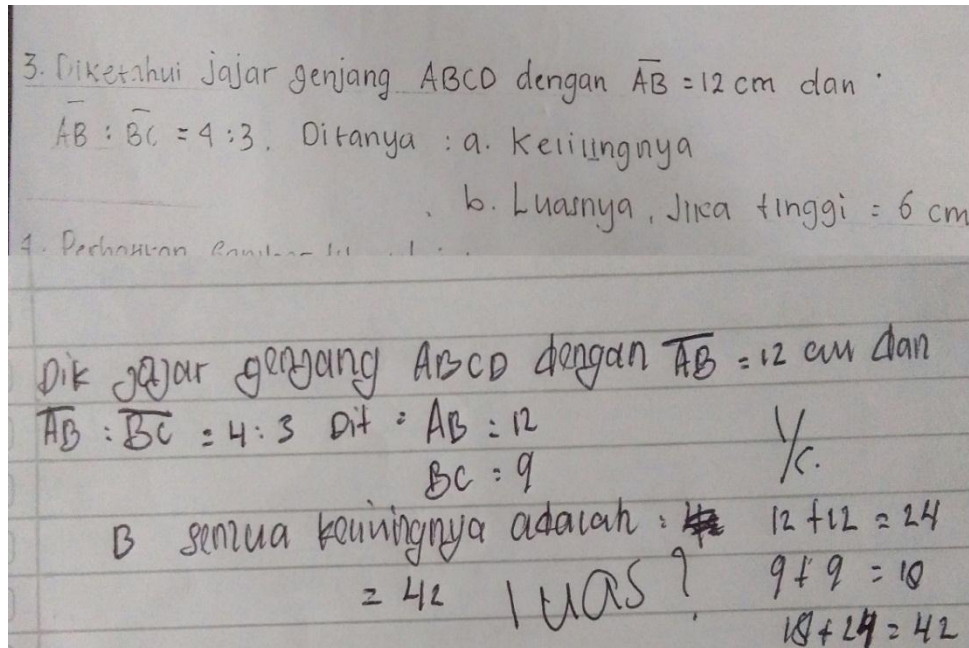 3. Diketahui jajar genjang ABCD dengan AB = 12 cm dan
AB : BC = 4 : 3. Ditanya : a. Kelilingnya
b. Luasnya, Jika tinggi = 6 cm
Dik jajar genjang ABCD dengan AB = 12 cm dan
AB : BC = 4 : 3 Dit : AB = 12
BC = 9
B semua kelilingnya adalah : 12 + 12 = 24
= 42 luas? 9 + 9 = 18
18 + 24 = 42